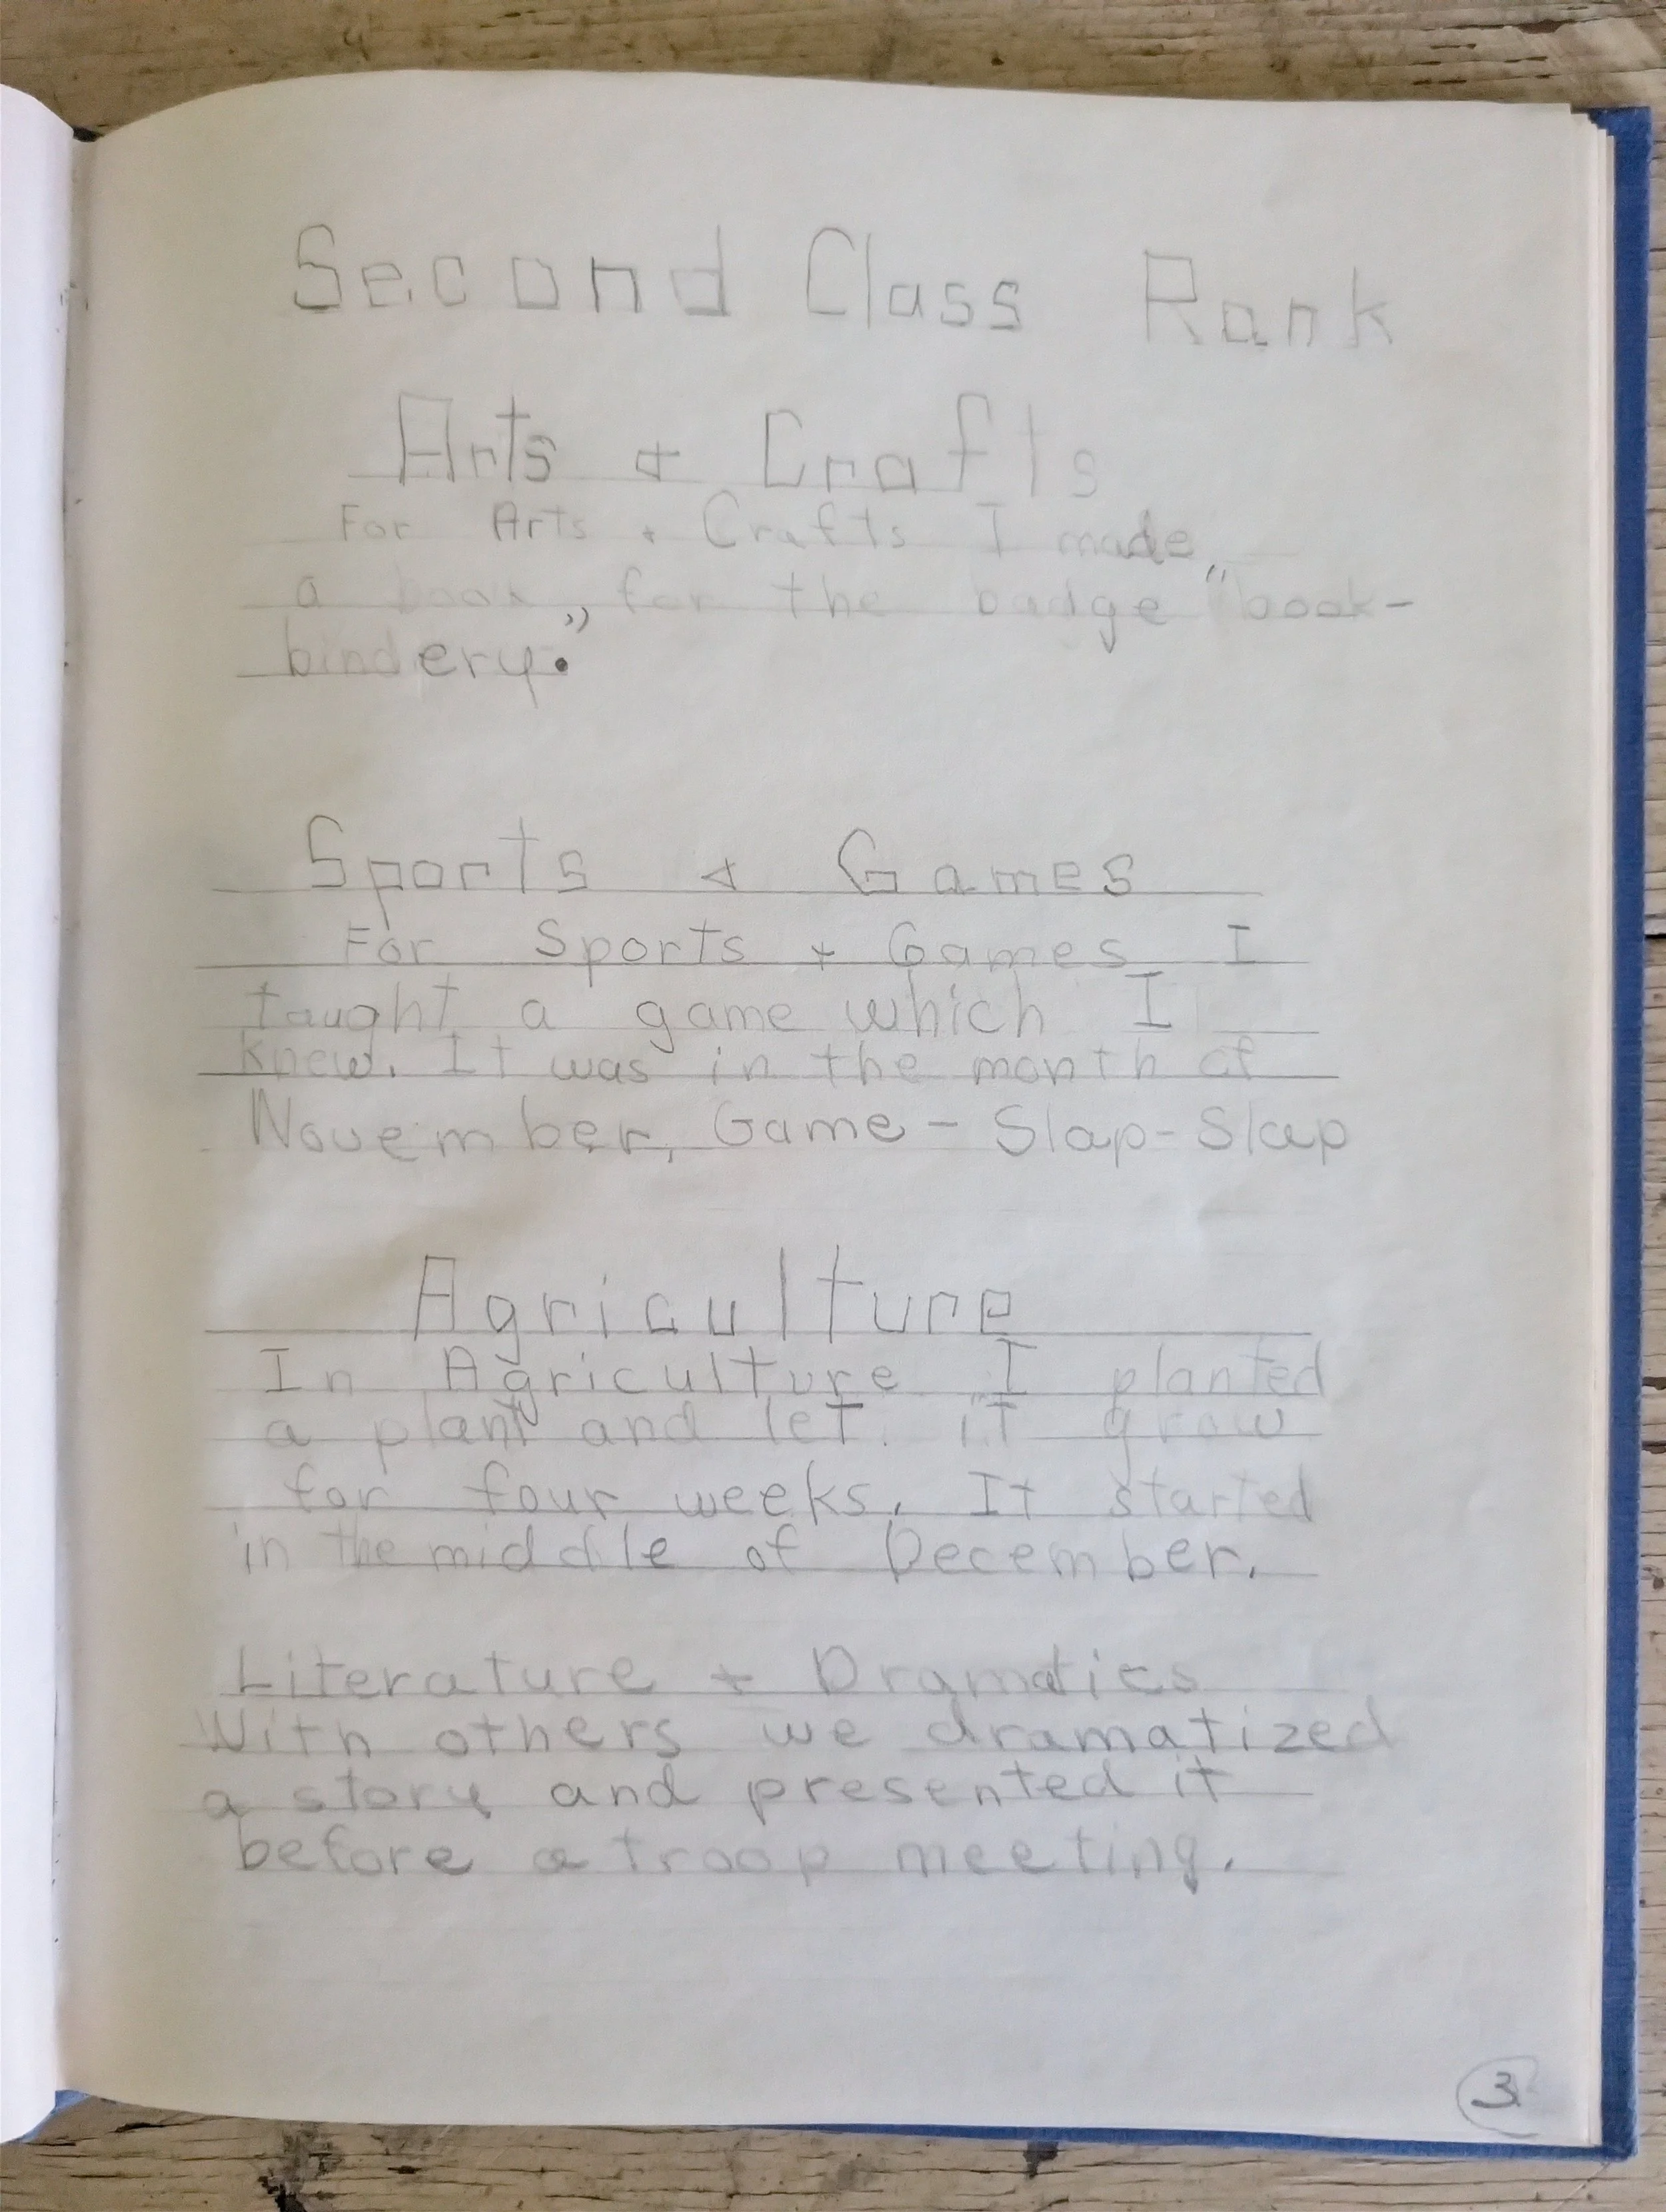 Second Class Rank
Arts + Crafts
For Arts + Crafts I made
a book, for the badge "book-
bindery."
Sports + Games
For Sports + Games I
taught a game which I
knew. It was in the month of
November, Game - Slap-Slap
Agriculture
In Agriculture I planted
a plant and let it grow
for four weeks. It started
in the middle of December.
Literature + Dramatics
With others we dramatized
a story and presented it
before a troop meeting.
3